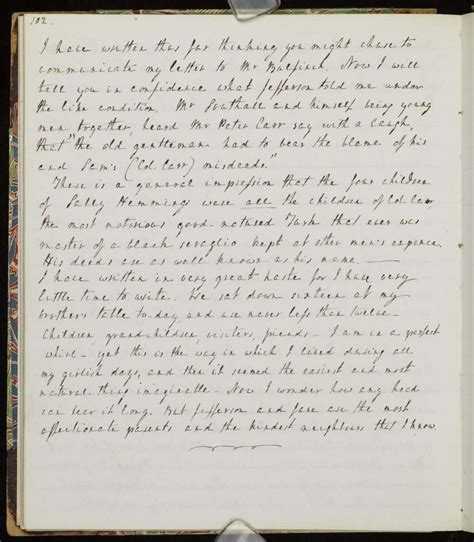 102.
I have written thus far thinking you might chuse to
communicate my letter to Mr Bulfinch. Now I will
tell you in confidence what Jefferson told me under
the like condition. Mr Southall and himself being young
men together, heard Mr Peter Carr say with a laugh,
that "the old gentleman had to bear the blame of his
and Sam's (Col. Carr) misdeeds."
There is a general impression that the four children
of Sally Hemmings were all the children of Col. Carr
the most notorious good-natured Turk that ever was
master of a black seraglio kept at other men's expence.
His deeds are as well known as his name. —
I have written in very great haste for I have very
little time to write. We sat down sixteen at my
brother's table to day, and are never less than twelve —
Children, grandchildren, visiters, friends — I am in a perfect
whirl — yet this is the way in which I lived during all
my girlish days, and then it seemed the easiest and most
natural thing imaginable — Now I wonder how any head
can bear it long. But Jefferson and Jane are the most
affectionate parents and the kindest neighbours that I know